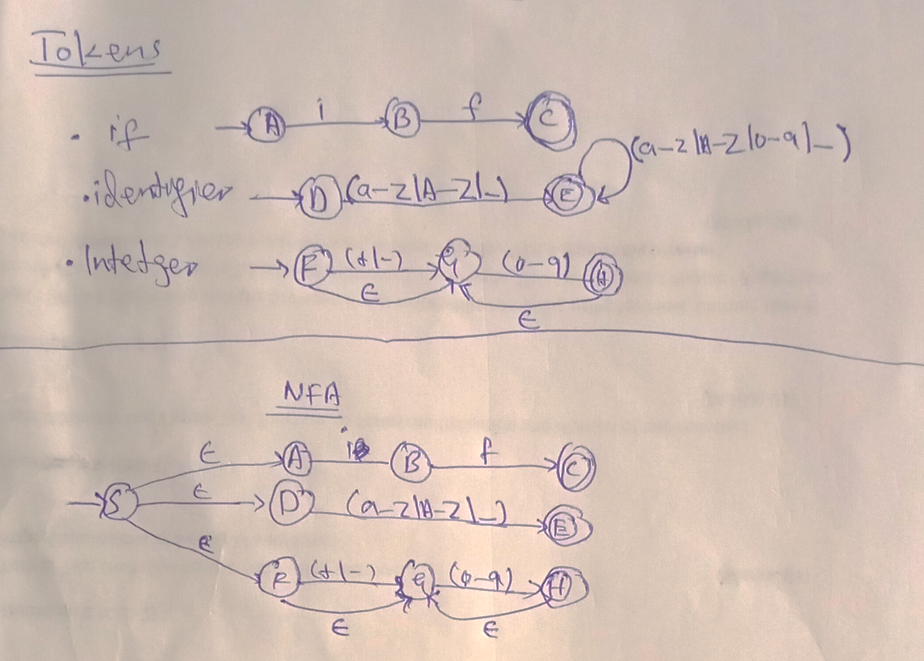 Tokens
• if → A i B f C
• identifier → D (a-z|A-Z|_) E (a-z|A-Z|0-9|_)
• Intetger → F (+|-) G (0-9) H
ϵ ϵ
NFA
ϵ A i B f C
S ϵ D (a-z|A-Z|_) E
ϵ F (+|-) G (0-9) H
ϵ ϵ